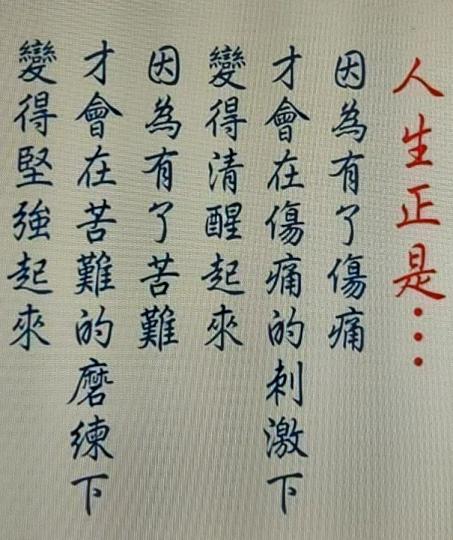 人生正是…
因為有了傷痛
才會在傷痛的刺激下
變得清醒起來
因為有了苦難
才會在苦難的磨練下
變得堅強起來